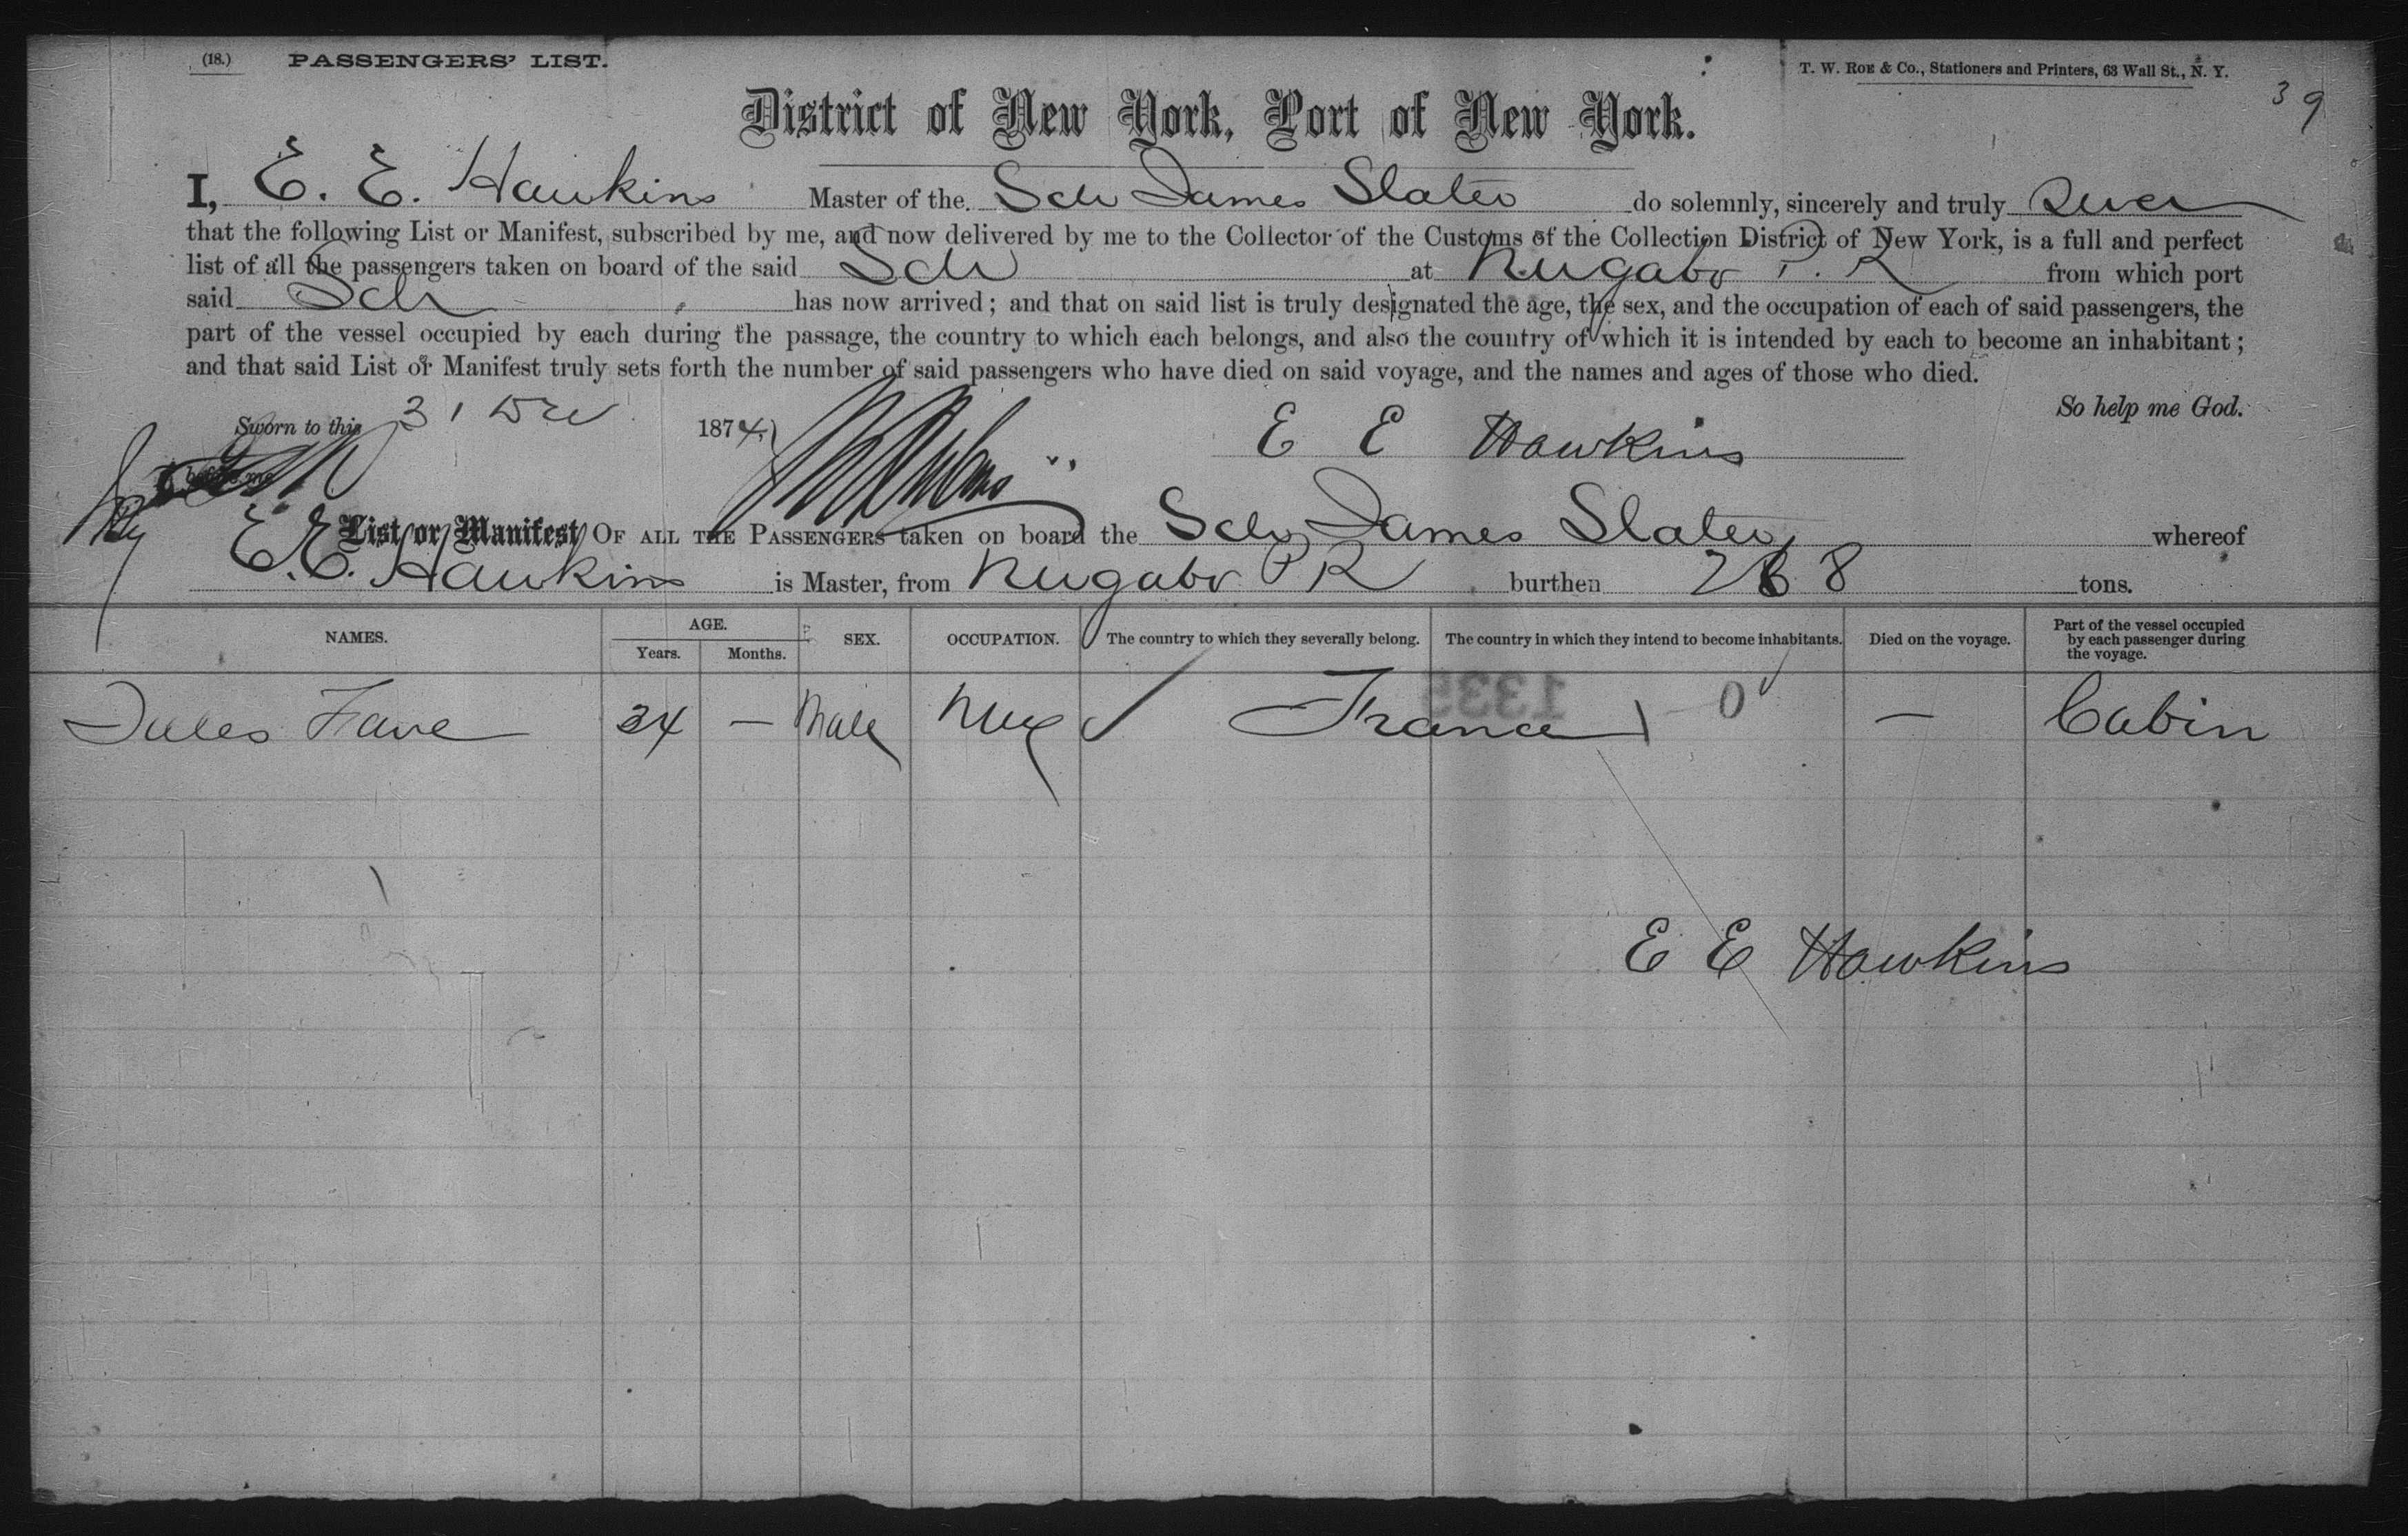 (18.) PASSENGERS' LIST.
T. W. ROE & Co., Stationers and Printers, 63 Wall St., N. Y.
39
District of New York, Port of New York.
I, E. E. Hawkins Master of the Schr James Slater do solemnly, sincerely and truly Swear
that the following List or Manifest, subscribed by me, and now delivered by me to the Collector of the Customs of the Collection District of New York, is a full and perfect
list of all the passengers taken on board of the said Schr at Nugabo P. R from which port
said Schr has now arrived; and that on said list is truly designated the age, the sex, and the occupation of each of said passengers, the
part of the vessel occupied by each during the passage, the country to which each belongs, and also the country of which it is intended by each to become an inhabitant;
and that said List or Manifest truly sets forth the number of said passengers who have died on said voyage, and the names and ages of those who died.
So help me God.
Sworn to this 31 Dec 1874,
E E Hawkins
before me
List or Manifest OF ALL THE PASSENGERS taken on board the Schr James Slater whereof
E. E. Hawkins is Master, from Nugabo P R burthen 268 tons.
NAMES. AGE. Years. Months. SEX. OCCUPATION. The country to which they severally belong. The country in which they intend to become inhabitants. Died on the voyage. Part of the vessel occupied by each passenger during the voyage.
1335
Jules Fave 34 — Male France 0 — Cabin
E E Hawkins